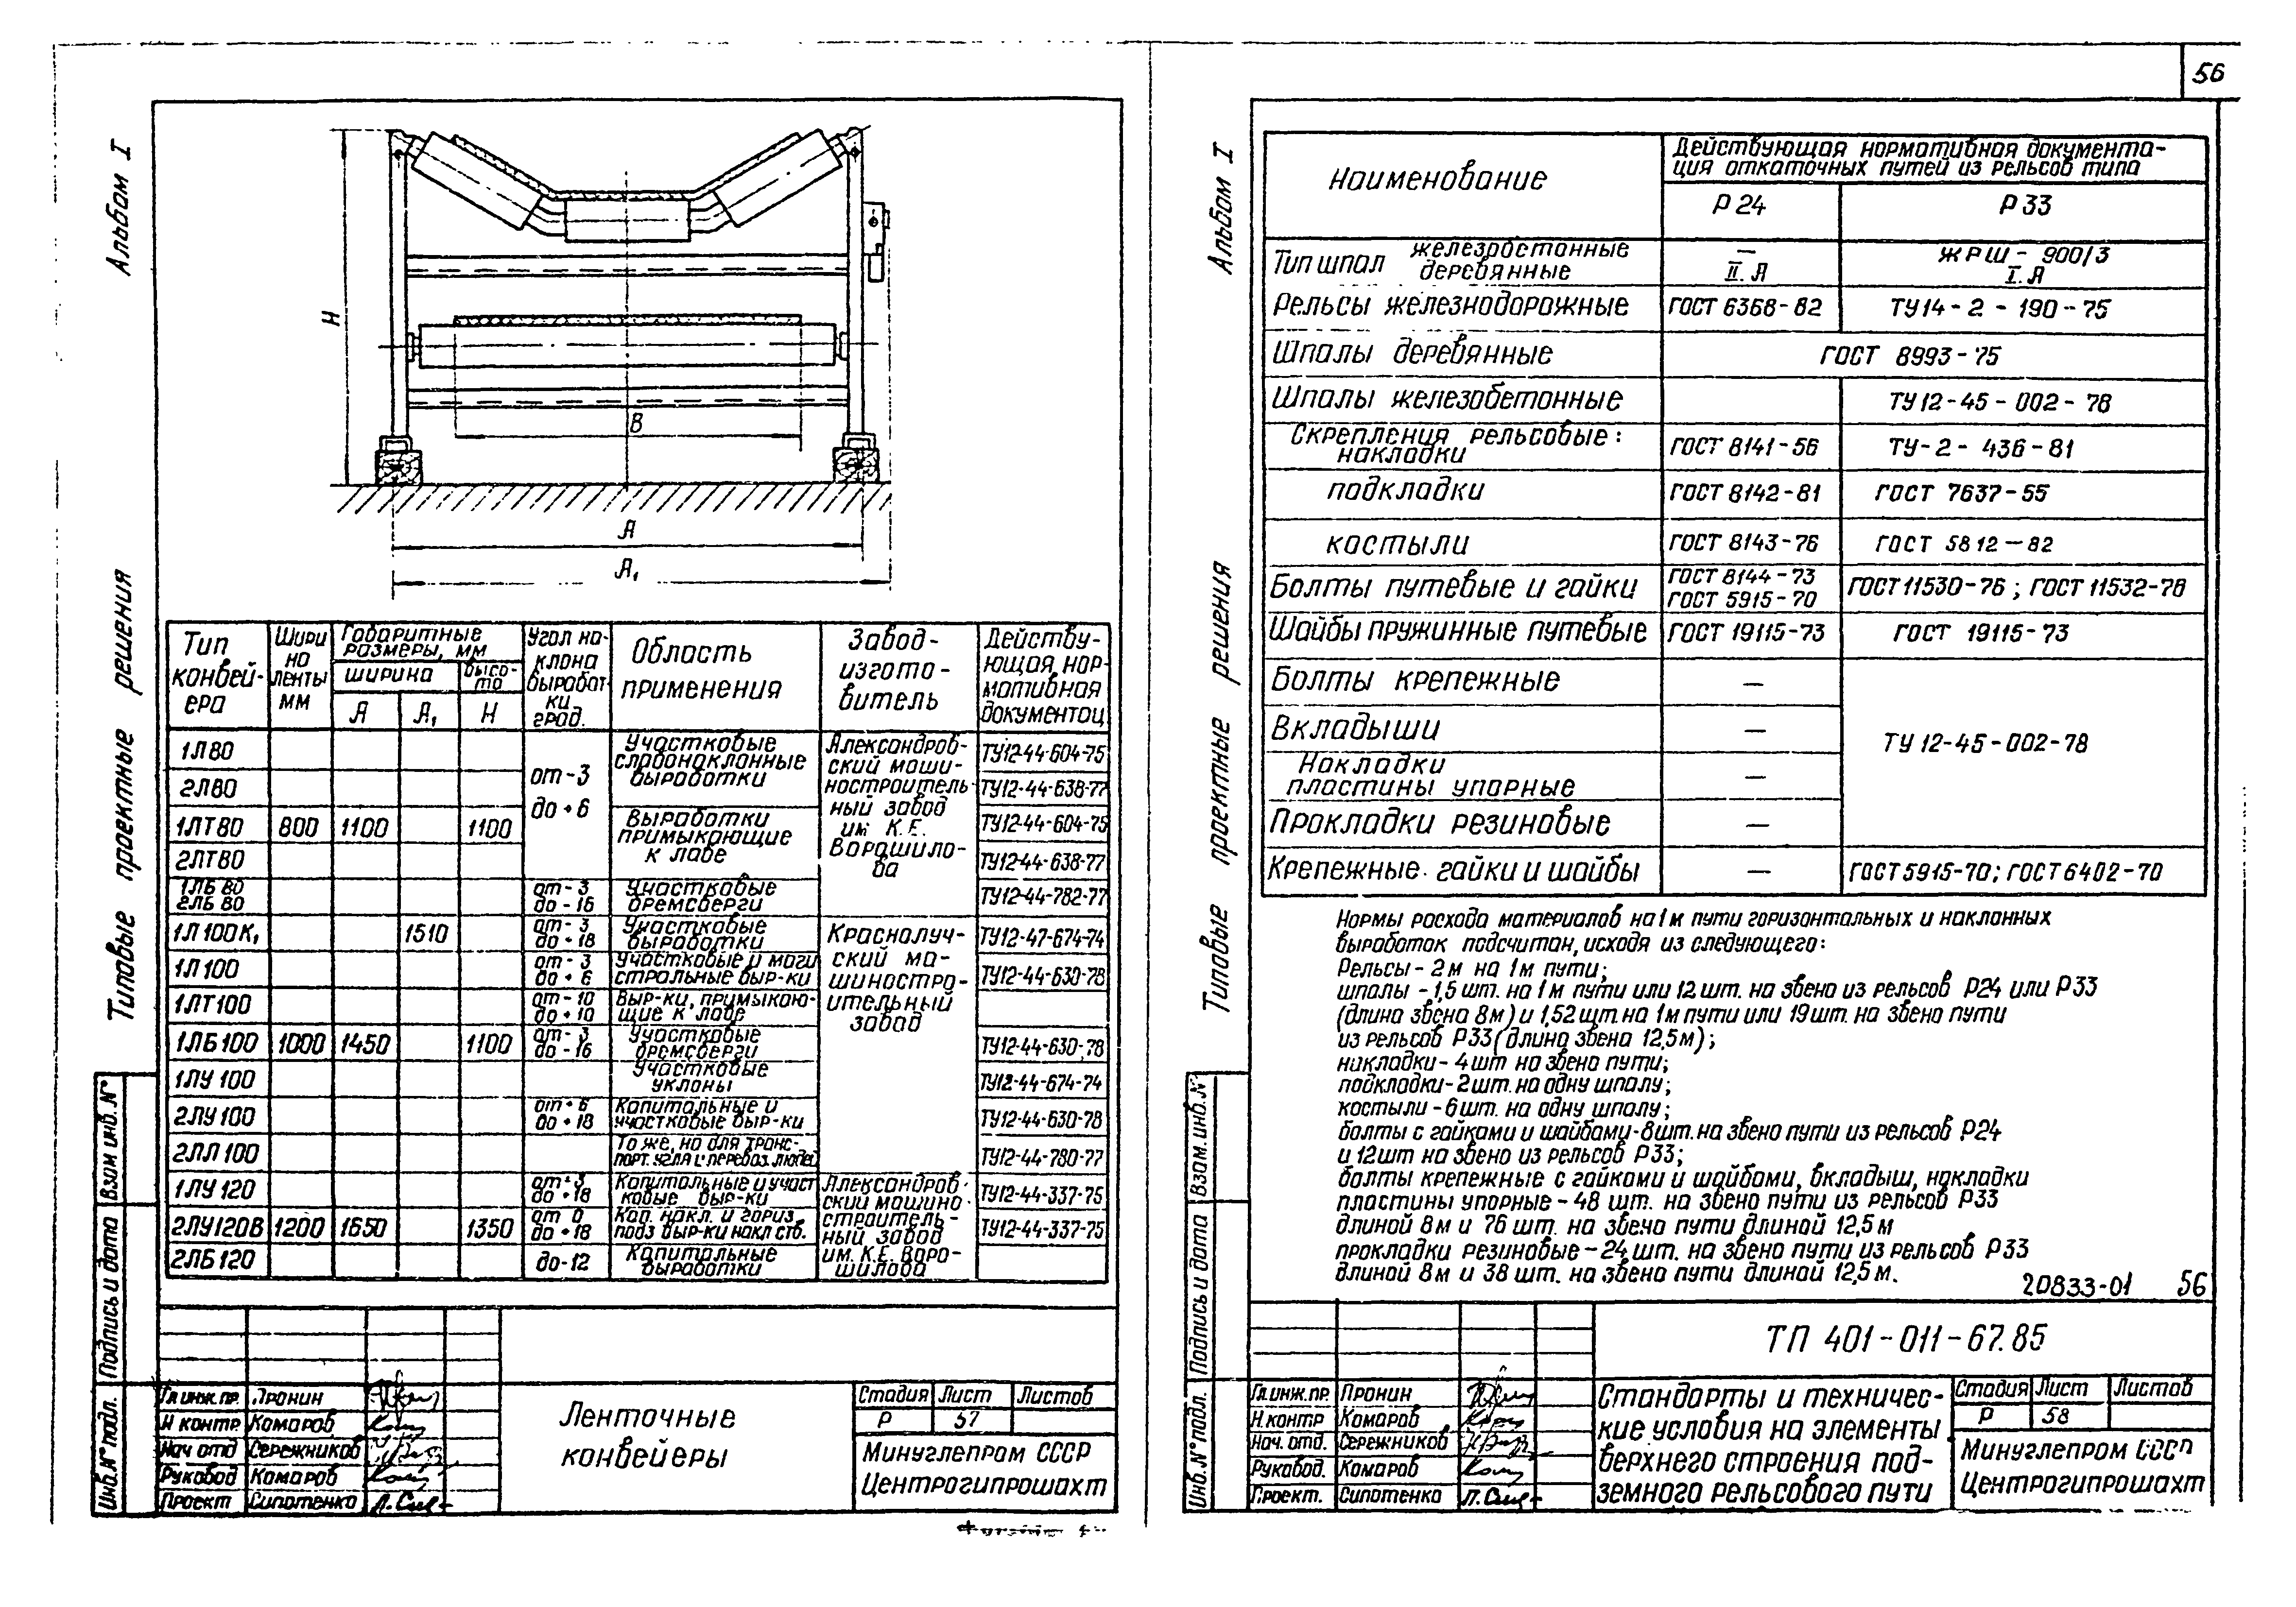 56
Альбом I
Типовые проектные решения
H
В
А
А₁
Тип конвей-ера
Шири на ленты мм
Габаритные размеры, мм
ширина
высо-та
А
А₁
Н
Угол на-клона выработ-ки град.
Область применения
Завод-изгото-витель
Действу-ющая нор-мативная документац
1Л80
2Л80
1ЛТ80 800 1100 1100
2ЛТ80
от -3
до +6
Участковые
слабонаклонные
выработки
Выработки
примыкающие
к лаве
Александров-
ский маши-
ностроитель-
ный завод
им К.Е.
Ворошило-
ва
ТУ12-44-604-75
ТУ12-44-638-77
ТУ12-44-604-75
ТУ12-44-638-77
1ЛБ 80
2ЛБ 80
от -3
до -16
Участковые
бремсберги
ТУ12-44-782-77
1Л100К₁ 1510
от -3
до +18
Участковые
выработки
ТУ12-47-674-74
Краснолуч-
ский ма-
шиностро-
ительный
завод
1Л100
от -3
до + 6
Участковые и маги
стральные выр-ки
ТУ12-44-630-78
1ЛТ100
от -10
до +10
Выр-ки, примыкаю-
щие к лаве
1ЛБ100 1000 1450 1100
от -3
до -16
Участковые
бремсберги
ТУ12-44-630-78
1ЛУ 100
Участковые
уклоны
ТУ12-44-674-74
2ЛУ100
от + 6
до + 18
Капитальные и
участковые выр-ки
ТУ12-44-630-78
2ЛЛ 100
То же, но для транс-
порт. угля и перевоз. людей
ТУ12-44-780-77
1ЛУ 120
от + 3
до +18
Капитальные и участ
ковые выр-ки
ТУ12-44-337-75
Александров-
ский машино-
строитель-
ный завод
им. К.Е. Воро-
шилова
2ЛУ120В 1200 1650 1350
от 0
до +18
Кап. накл. и гориз.
подз выр-ки накл ств.
ТУ12-44-337-75
2ЛБ 120
до -12
Капитальные
выработки
Взам инв. №
Подпись и дата
Инв. № подл.
Гл.инж.пр. Пронин
Н контр Комаров
Нач отд Сережников
Руковод Комаров
Проект Сипотенко
Ленточные
конвейеры
Стадия Лист Листов
Р 57
Минуглепром СССР
Центрогипрошахт
Альбом I
Типовые проектные решения
Наименование
Действующая нормативная документа-
ция откаточных путей из рельсов типа
Р 24 Р 33
Тип шпал железобетонные — ЖРШ - 900/3
деревянные II. А I. А
Рельсы железнодорожные ГОСТ 6368-82 ТУ14-2-190-75
Шпалы деревянные ГОСТ 8993-75
Шпалы железобетонные ТУ12-45-002-78
Скрепления рельсовые:
накладки ГОСТ 8141-56 ТУ-2-436-81
подкладки ГОСТ 8142-81 ГОСТ 7637-55
костыли ГОСТ 8143-76 ГОСТ 5812-82
Болты путевые и гайки ГОСТ 8144-73 ГОСТ 5915-70 ГОСТ11530-76; ГОСТ 11532-78
Шайбы пружинные путевые ГОСТ 19115-73 ГОСТ 19115-73
Болты крепежные —
Вкладыши —
ТУ 12-45-002-78
Накладки
пластины упорные —
Прокладки резиновые —
Крепежные гайки и шайбы — ГОСТ5915-70; ГОСТ6402-70
Нормы расхода материалов на 1м пути горизонтальных и наклонных
выработок подсчитан, исходя из следующего:
Рельсы - 2м на 1м пути;
шпалы - 1,5 шт. на 1м пути или 12 шт. на звено из рельсов Р24 или Р33
(длина звена 8м) и 1,52 шт. на 1м пути или 19 шт. на звено пути
из рельсов Р33 (длина звена 12,5м);
накладки - 4шт на звено пути;
подкладки - 2шт. на одну шпалу;
костыли - 6шт. на одну шпалу;
болты с гайками и шайбами - 8шт. на звено пути из рельсов Р24
и 12шт на звено из рельсов Р33;
болты крепежные с гайками и шайбами, вкладыш, накладки
пластины упорные - 48 шт. на звено пути из рельсов Р33
длиной 8м и 76 шт. на звено пути длиной 12,5м
прокладки резиновые - 24 шт. на звено пути из рельсов Р33
длиной 8м и 38 шт. на звено пути длиной 12,5м.
20833-01 56
Взам. инв. №
Подпись и дата
Инв. № подл.
ТП 401-011-67.85
Гл.инж.пр. Пронин
Н.контр Комаров
Нач. отд. Сережников
Руковод. Комаров
Проект. Сипотенко
Стандарты и техничес-
кие условия на элементы
верхнего строения под-
земного рельсового пути
Стадия Лист Листов
Р 58
Минуглепром СССР
Центрогипрошахт